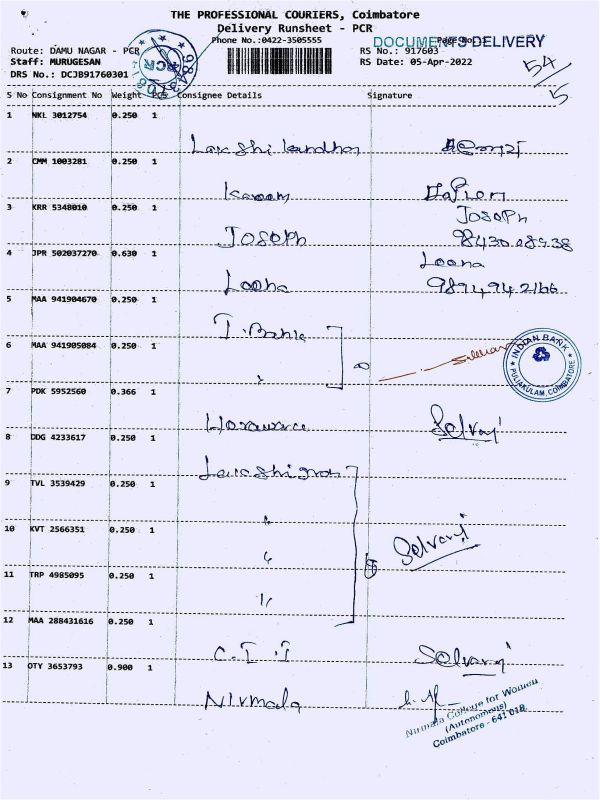 THE PROFESSIONAL COURIERS, Coimbatore
Delivery Runsheet - PCR
Phone No.:0422-3505555
DOCUMENTS DELIVERY
Route: DAMU NAGAR - PCR
RS No.: 917603
Staff: MURUGESAN
RS Date: 05-Apr-2022
DRS No.: DCJB91760301
PCR
54/5
S No Consignment No Weight PCS Consignee Details Signature
1 NKL 3012754 0.250 1
2 CMM 1003281 0.250 1
Karoom
3 KRR 5348010 0.250 1
JOSOPh
JOSOPh
4 JPR 502037270 0.630 1
Loona
Loona
5 MAA 941904670 0.250 1
6 MAA 941905084 0.250 1
INDIAN BANK
PULIAKULAM, COIMBATORE
7 PDK 5952560 0.366 1
Selvaraj
8 DDG 4233617 0.250 1
9 TVL 3539429 0.250 1
10 KVT 2566351 0.250 1
Selvaraj
11 TRP 4985095 0.250 1
12 MAA 288431616 0.250 1
C.I.T Selvaraj
13 OTY 3653793 0.900 1
Nirmala
Nirmala College for Women
(Autonomous)
Coimbatore - 641 018.